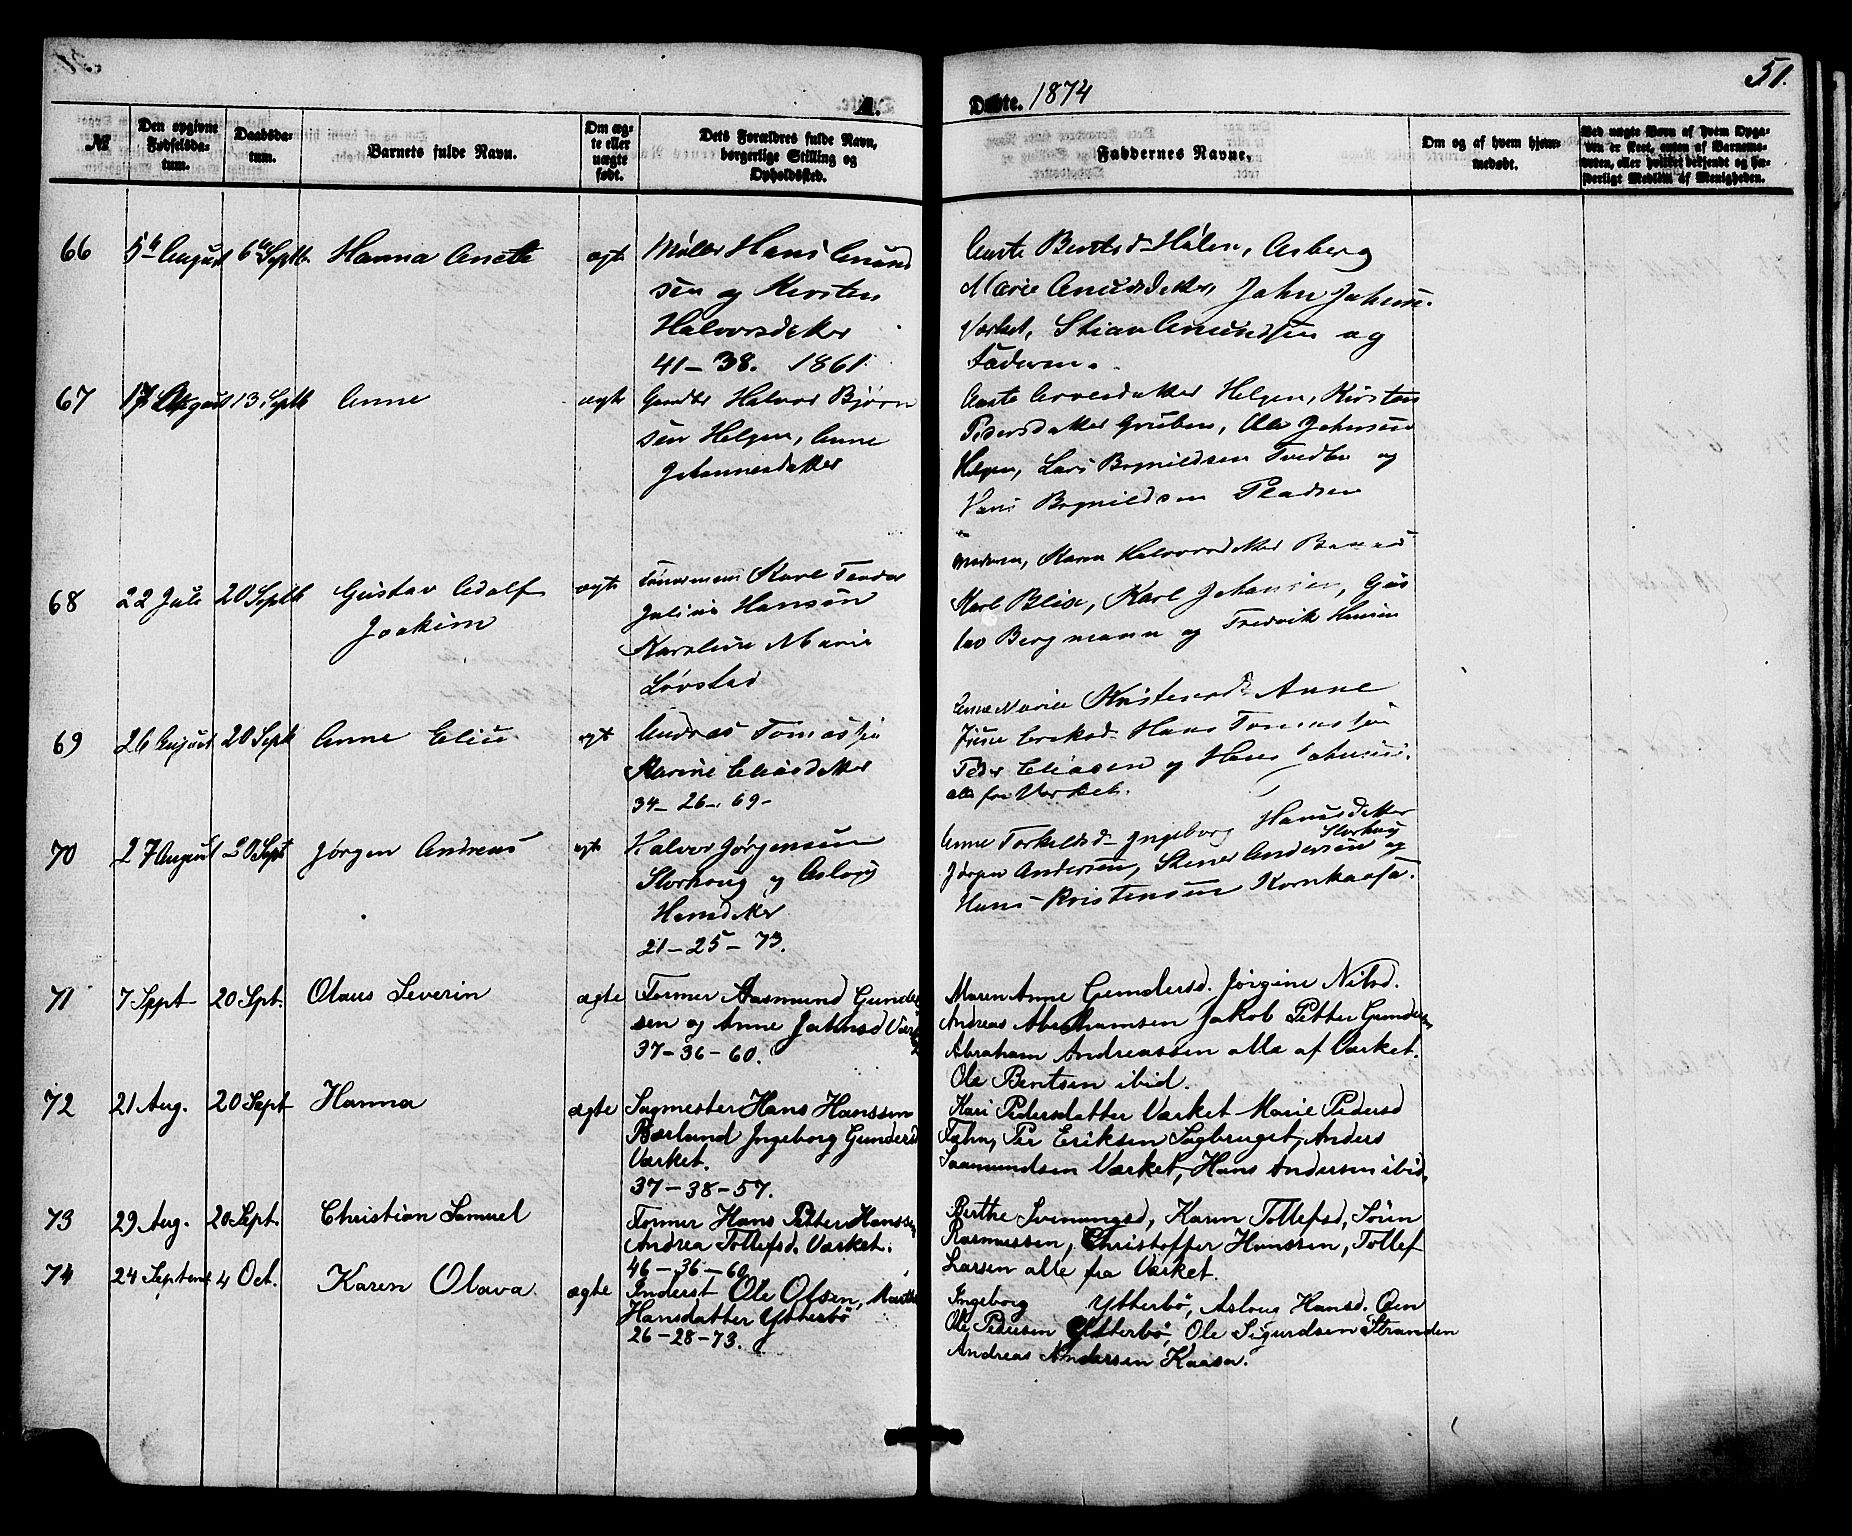 51.
A.
Døbte. 1874
№
Den opgivne Fødselsdatum.
Daabsdatum.
Barnets fulde Navn.
Om ægte eller uægte født.
Dets Forældres fulde Navn, borgerlige Stilling og Opholdssted.
Faddernes Navne.
Om og af hvem hjemmedøbt.
Ved uægte Børn af hvem Opgaven er skeet, enten af Barnemoderen, eller hvilket bekjendt og hæderligt Medlem af Menigheden.
66 5te August 6te Septb. Hanna Anete ægte
Møller Hans Amund
sen og Kirsten
Halvorsdatter
41-38. 1861.
Anete Bentsd Hølen, Asberg
Marie Amundsdatter, John Johnsen
Værket, Stian Amundsen og
Faderen.
67 17 August 13 Septb Anne ægte
Halvor Bjørn
sen Helgen, Anne
Johannesdatter
Helgen, Kirsten
Pedersdatter Gruben, Ole Johnsen
Helgen, Lars Bognildsen og
Hans Bognildsen Pladsen
68 22 Juli 20 Septb Gustav Adolf ægte
Joakim
Karl Teodor
Julius Hansen
Karoline Marie
Løvstad
Moderen, Karen Halvorsdatter
Karl Blix, Karl Johansen, Gus
tav Bergmann og Fredrik Hansen
69 26 August 20 Septb Anne Elise ægt
Andreas Tomassen
Karine Eliasdatter
34-26-69-
Anne Marie Kristensd. Anne
Eriksd Hans Tomassen
Peder Eliasen og Hans Johnsen.
alle fra Værket.
70 27 August 20 Sept Jørgen Andreas ægte
Halvor Jørgensen
Storhaug og Aslaug
Hansdatter
21-25-73.
Anne Torkildsd Ingeborg Hansdatter
Storhaug
Jørgen Andersen, Stener Andersen og
Hans Kristensen Kornkaasa.
71 7 Sept 20 Spt. Olaus Severin ægte
Former Aasmund Gunder
sen og Anne Johnsd Vær
37-36-60.
Maren Anne Gundersd. Jørgine Nilsd.
Andreas Abrahamsen Jakob Petter Gundersen
Abraham Andreassen alle af Værket.
Ole Bentsen ibid.
72 21 Aug. 20 Sept Hanna ægte
Sagmester Hans Hanssen
Bærland Ingeborg Gundersd
Værket.
37-38-57.
Kari Pedersdatter Værket Marie Pedersd
Per Eriksen Sagbruget, Anders
Saamundsen Værket, Hans Andersen ibid.
73 29 Aug. 20 Sept. Christian Samuel
Former Hans Petter Hanssen
Andrea Tollefsd. Værket.
46-36-60
Berthe Svenungsd, Karen Tollefsd, Søren
Rasmussen, Christoffer Hanssen, Tollef
Larsen alle fra Værket.
74 24 Septemb 4 Oct. Karen Olava ægte
Inderst Ole Olsen, Marthe
Hansdatter Ytterbö
26-28-73.
Ingeborg Ytterbö, Aslaug Hansd. Øen
Ole Pedersen Ytterbö, Ole Sigurdsen Stranden
Andreas Andersen Kaasa.